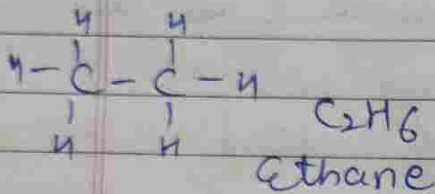 H H
H-C-C-H
H H
C2H6
Ethane